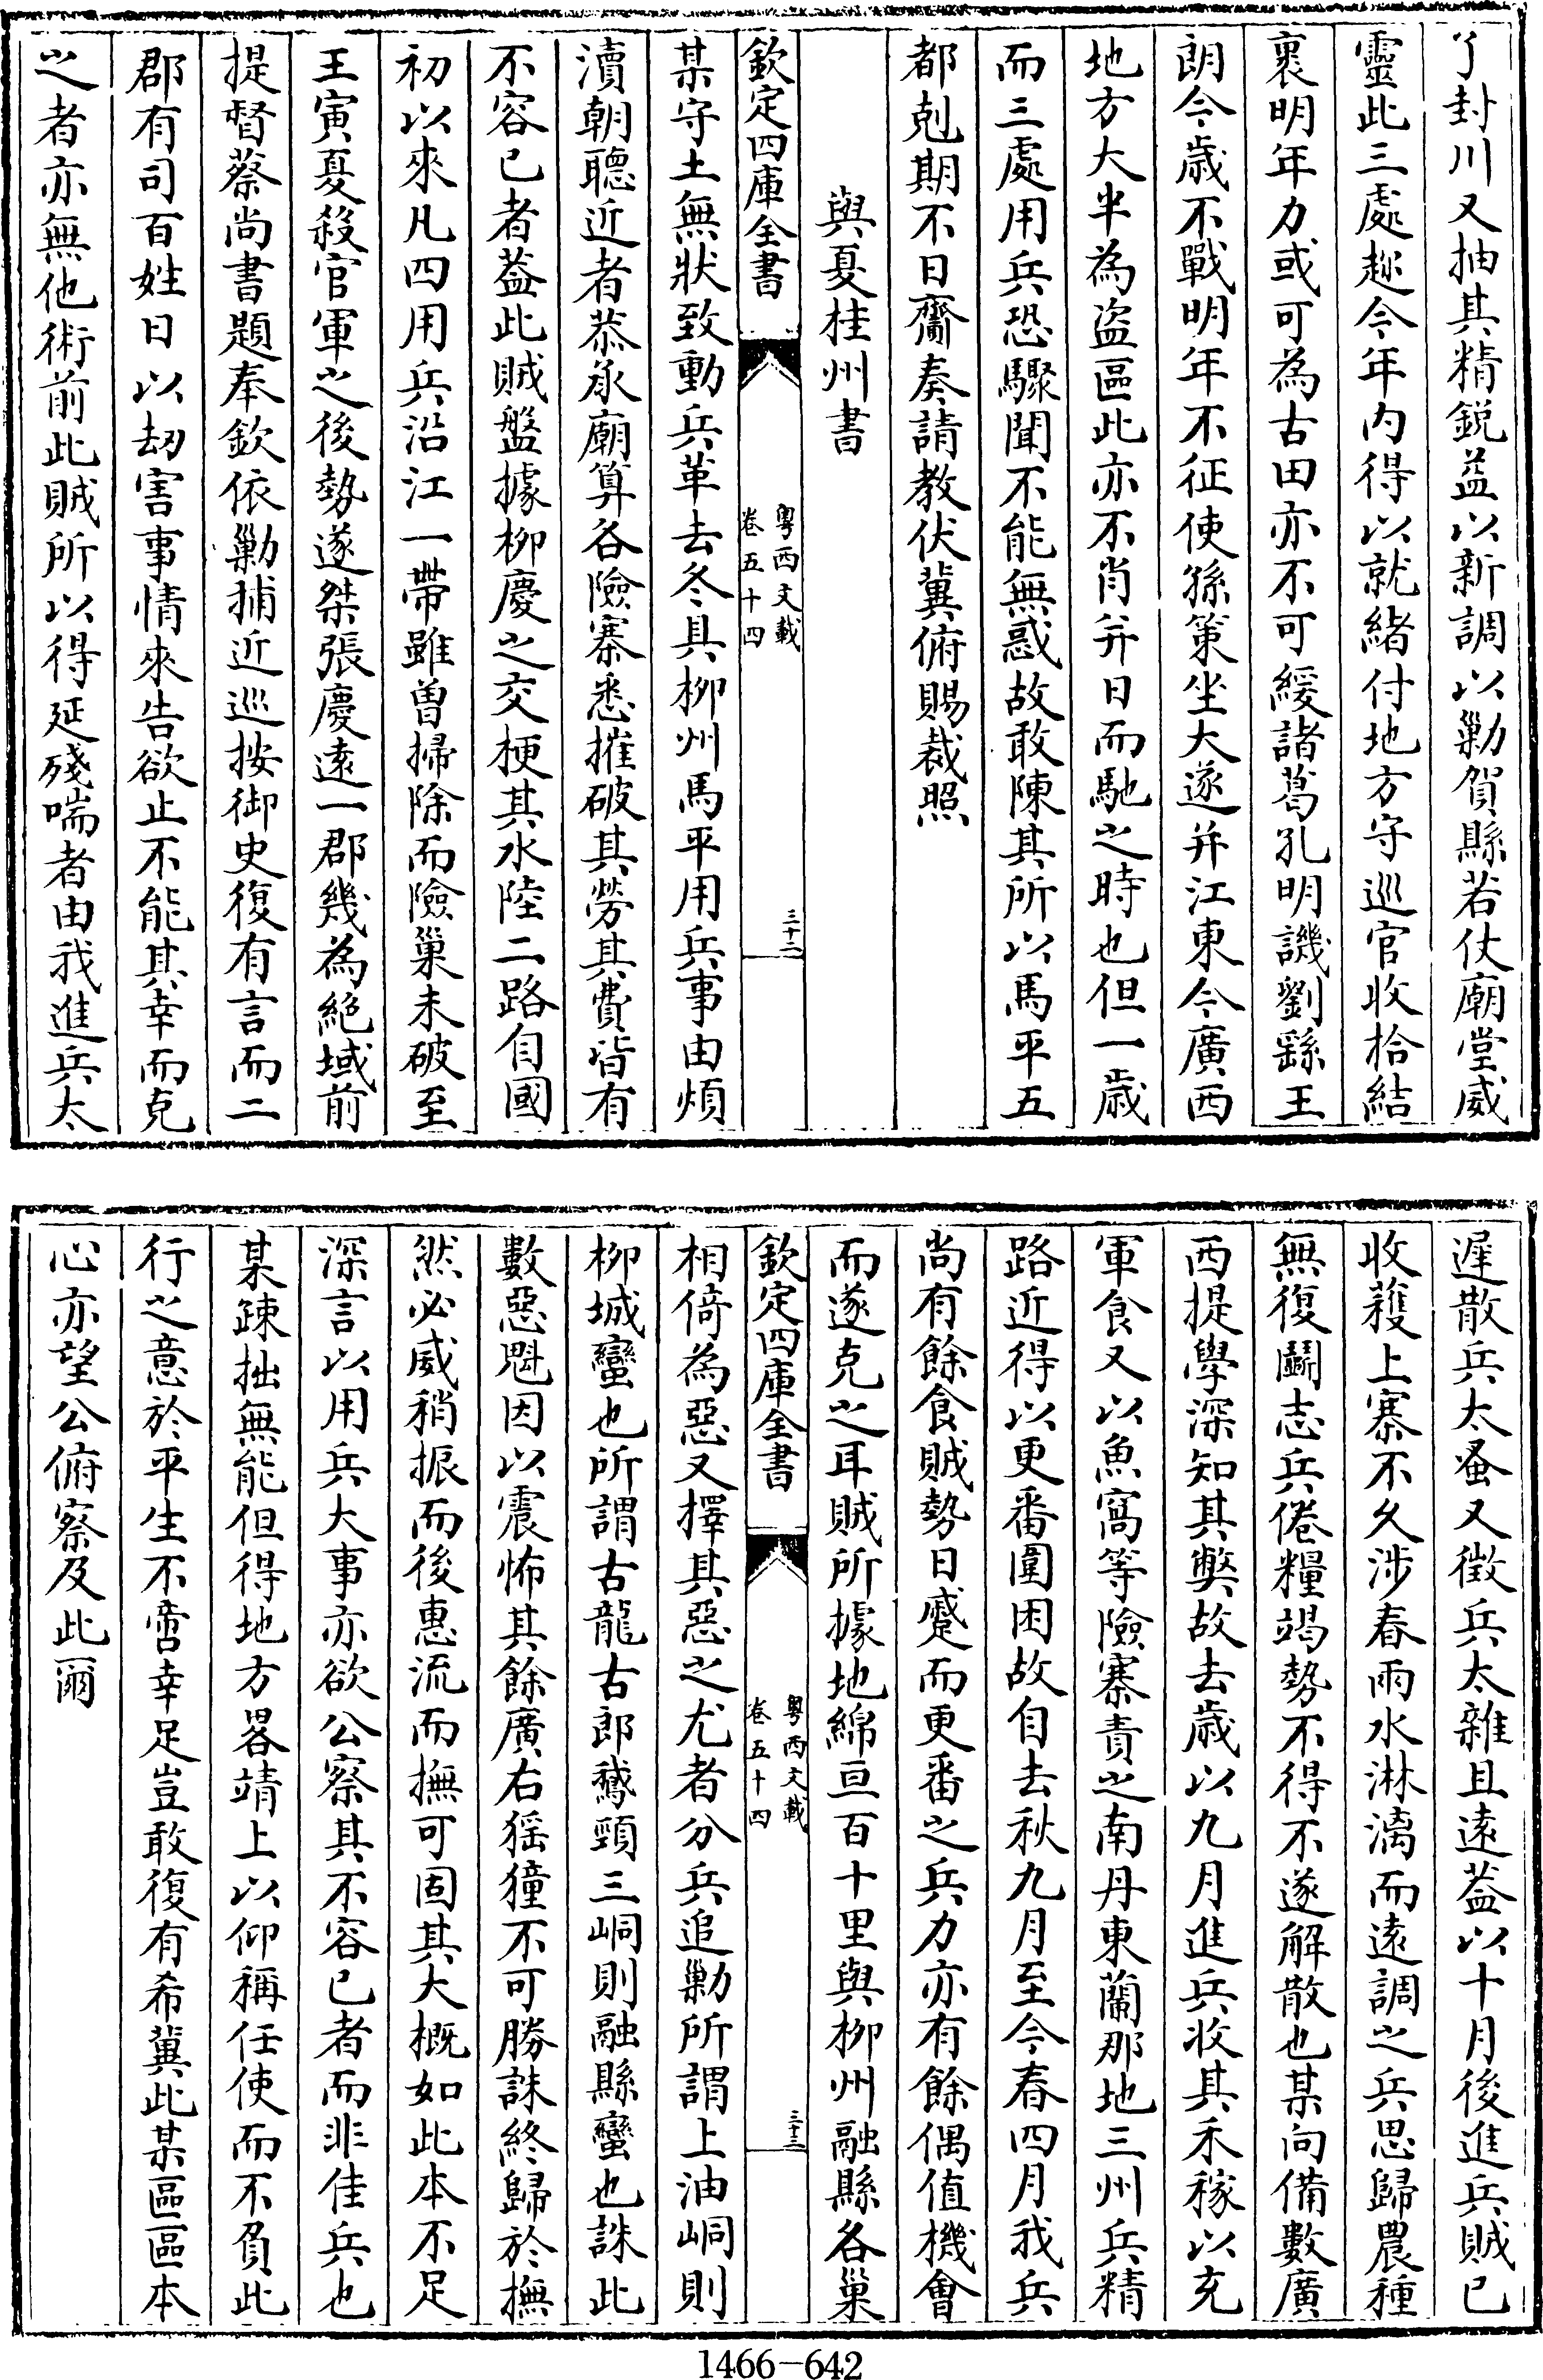 了封川又抽其精鋭益以新調以勦賀縣若仗廟堂威
靈此三處趂今年内得以就緒付地方守巡官收拾結
裹明年力或可為古田亦不可緩諸葛孔明譏劉繇王
朗今歳不戰明年不征使孫策坐大遂并江東今廣西
地方大半為盜區此亦不肖并日而馳之時也但一歳
而三處用兵恐驟聞不能無惑故敢陳其所以馬平五
都剋期不日齎奏請教伏冀俯賜裁照
與夏桂州書
欽定四庫全書
粤西文載
卷五十四
三十二
某守土無狀致動兵革去冬具柳州馬平用兵事由煩
瀆朝聽近者恭承廟算各險寨悉摧破其勞其費皆有
不容已者葢此賊盤據柳慶之交梗其水陸二路自國
初以來凡四用兵沿江一帶雖曽掃除而險巢未破至
王寅夏殺官軍之後勢遂桀張慶遠一郡幾為絶域前
提督蔡尚書題奉欽依勦捕近廵按御史復有言而二
郡有司百姓日以刼害事情來告欲止不能其幸而克
之者亦無他術前此賊所以得延殘喘者由我進兵太
遲散兵太蚤又徴兵太雜且遠葢以十月後進兵賊已
收穫上寨不久涉春雨水淋漓而遠調之兵思歸農種
無復鬭志兵倦糧竭勢不得不遂解散也某向備數廣
西提學深知其弊故去歳以九月進兵收其禾稼以充
軍食又以魚窩等險寨責之南丹東蘭那地三州兵精
路近得以更番圍困故自去秋九月至今春四月我兵
尚有餘食賊勢日蹙而更番之兵力亦有餘偶值機會
而遂克之耳賊所據地綿亘百十里與柳州融縣各巢
欽定四庫全書
粤西文載
卷五十四
三十三
相倚為惡又擇其惡之尤者分兵追勦所謂上油峒則
柳城蠻也所謂古龍古郎鵞頸三峒則融縣蠻也誅此
數惡魁因以震怖其餘廣右猺獞不可勝誅終歸於撫
然必威稍振而後惠流而撫可固其大概如此本不足
深言以用兵大事亦欲公察其不容已者而非佳兵也
某踈拙無能但得地方畧靖上以仰稱任使而不負此
行之意於平生不啻幸足豈敢復有希冀此某區區本
心亦望公俯察及此爾
1466-642